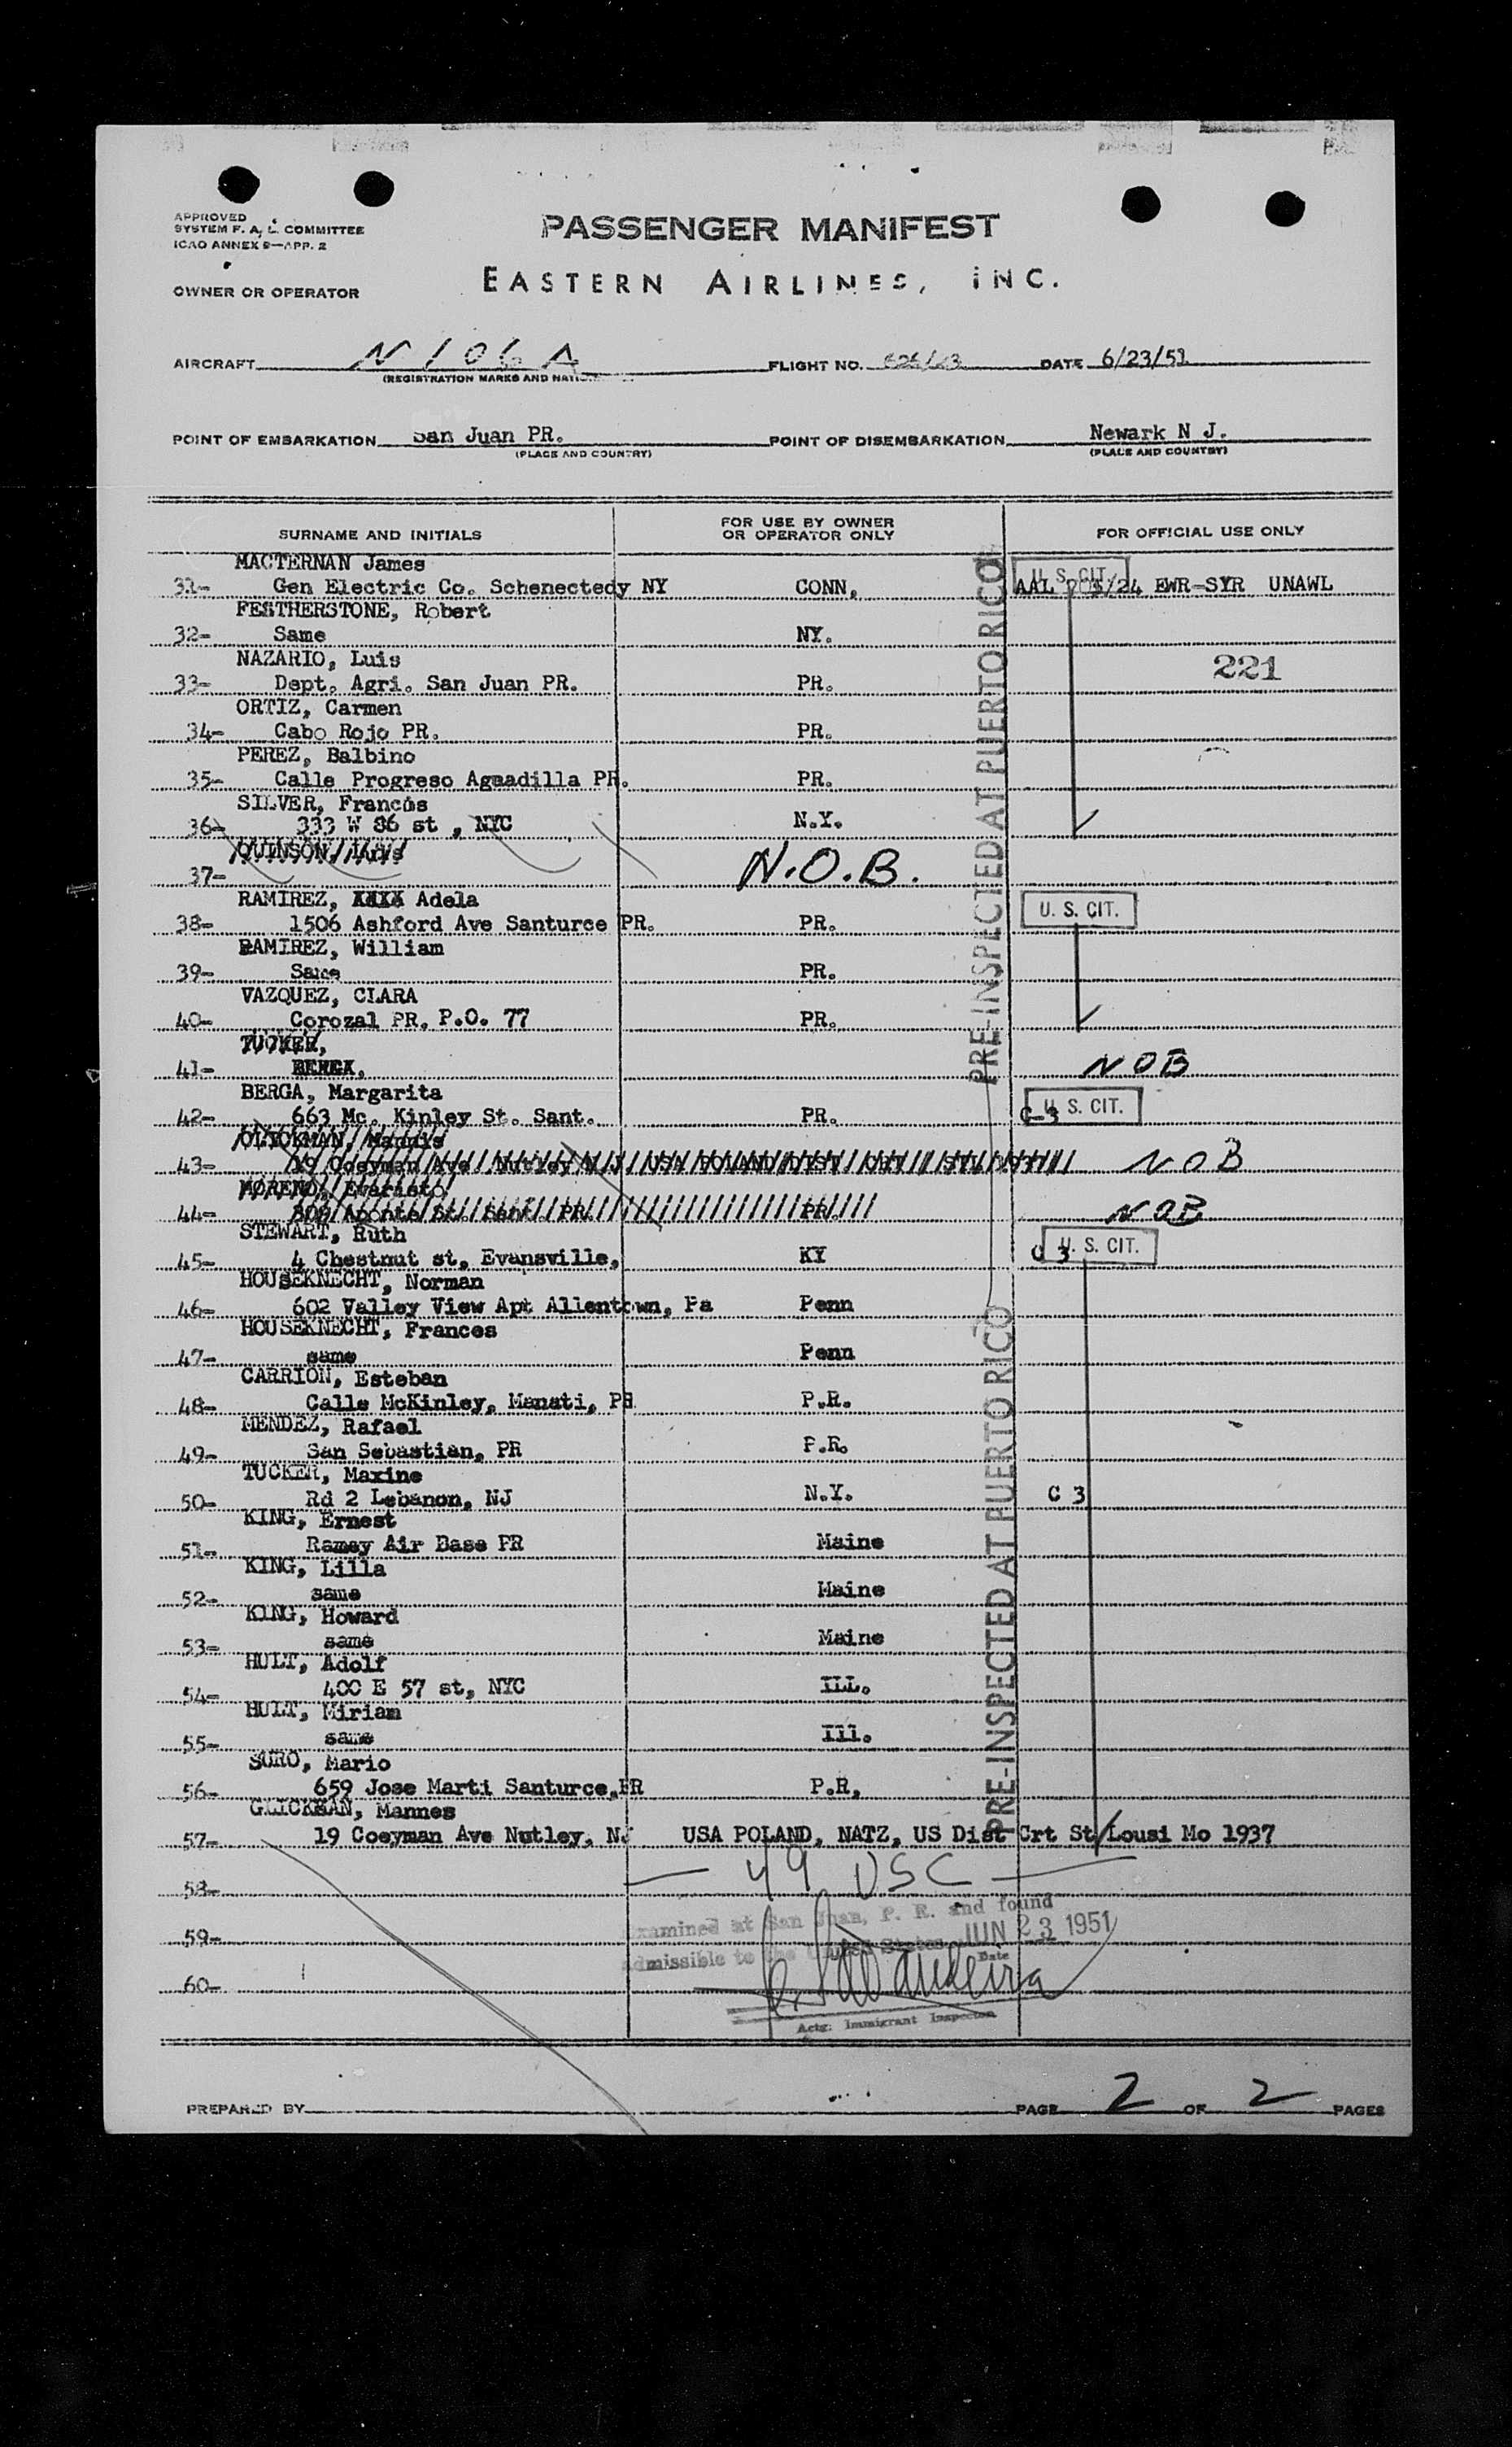 APPROVED
SYSTEM F. A. L. COMMITTEE
ICAO ANNEX 9—APP. 2
PASSENGER MANIFEST
OWNER OR OPERATOR
EASTERN AIRLINES, INC.
AIRCRAFT N106A FLIGHT NO. DATE 6/23/51
(REGISTRATION MARKS AND
POINT OF EMBARKATION San Juan PR. POINT OF DISEMBARKATION Newark N J.
(PLACE AND COUNTRY) (PLACE AND COUNTRY)
SURNAME AND INITIALS FOR USE BY OWNER OR OPERATOR ONLY FOR OFFICIAL USE ONLY
MACTERNAN James U. S. CIT.
31- Gen Electric Co. Schenectedy NY CONN, AAL EWR-SYR UNAWL
FESTHERSTONE, Robert
32- Same NY.
NAZARIO, Luis 221
33- Dept. Agri. San Juan PR. PR.
ORTIZ, Carmen
34- Cabo Rojo PR. PR.
PEREZ, Balbino
35- Calle Progreso Aguadilla PR. PR.
SILVER, Francés
36- 333 W 86 st , NYC N.Y.
QUINSON,
37- N.O.B.
RAMIREZ, Adela U. S. CIT.
38- 1506 Ashford Ave Santurce PR. PR.
RAMIREZ, William
39- Same PR.
VAZQUEZ, CLARA
40- Corozal PR. P.O. 77 PR.
TUCKER,
41- BERGA, NOB
BERGA, Margarita
42- 663 Mc. Kinley St. Sant. PR. C-3 U. S. CIT.
GLICKMAN, Mannis
43- 19 Coeyman Ave Nutley N J USA POLAND NOB
MORENO, Evaristo
44- Aponte St. Sant. PR. PR. NOB
STEWART, Ruth
45- 4 Chestnut st, Evansville, KY C 3 U. S. CIT.
HOUSEKNECHT, Norman
46- 602 Valley View Apt Allentown, Pa Penn
HOUSEKNECHT, Frances
47- same Penn
CARRION, Esteban
48- Calle McKinley, Manati, PR P.R.
MENDEZ, Rafael
49- San Sebastian, PR P.R.
TUCKER, Maxine
50- Rd 2 Lebanon, NJ N.Y. C 3
KING, Ernest
51- Ramey Air Base PR Maine
KING, Lilla
52- same Maine
KING, Howard
53- same Maine
HULT, Adolf
54- 400 E 57 st, NYC ILL.
HULT, Miriam
55- same Ill.
SURO, Mario
56- 659 Jose Marti Santurce,PR P.R,
GLICKMAN, Mannes
57- 19 Coeyman Ave Nutley, NJ USA POLAND, NATZ, US Dist Crt St/Lousi Mo 1937
58- — 49 USC —
59- Examined at San Juan, P. R. and found
admissible to the United States JUN 23 1951
Date
60-
Actg. Immigrant Inspector
PRE-INSPECTED AT PUERTO RICO
PRE-INSPECTED AT PUERTO RICO
PREPARED BY PAGE 2 OF 2 PAGES